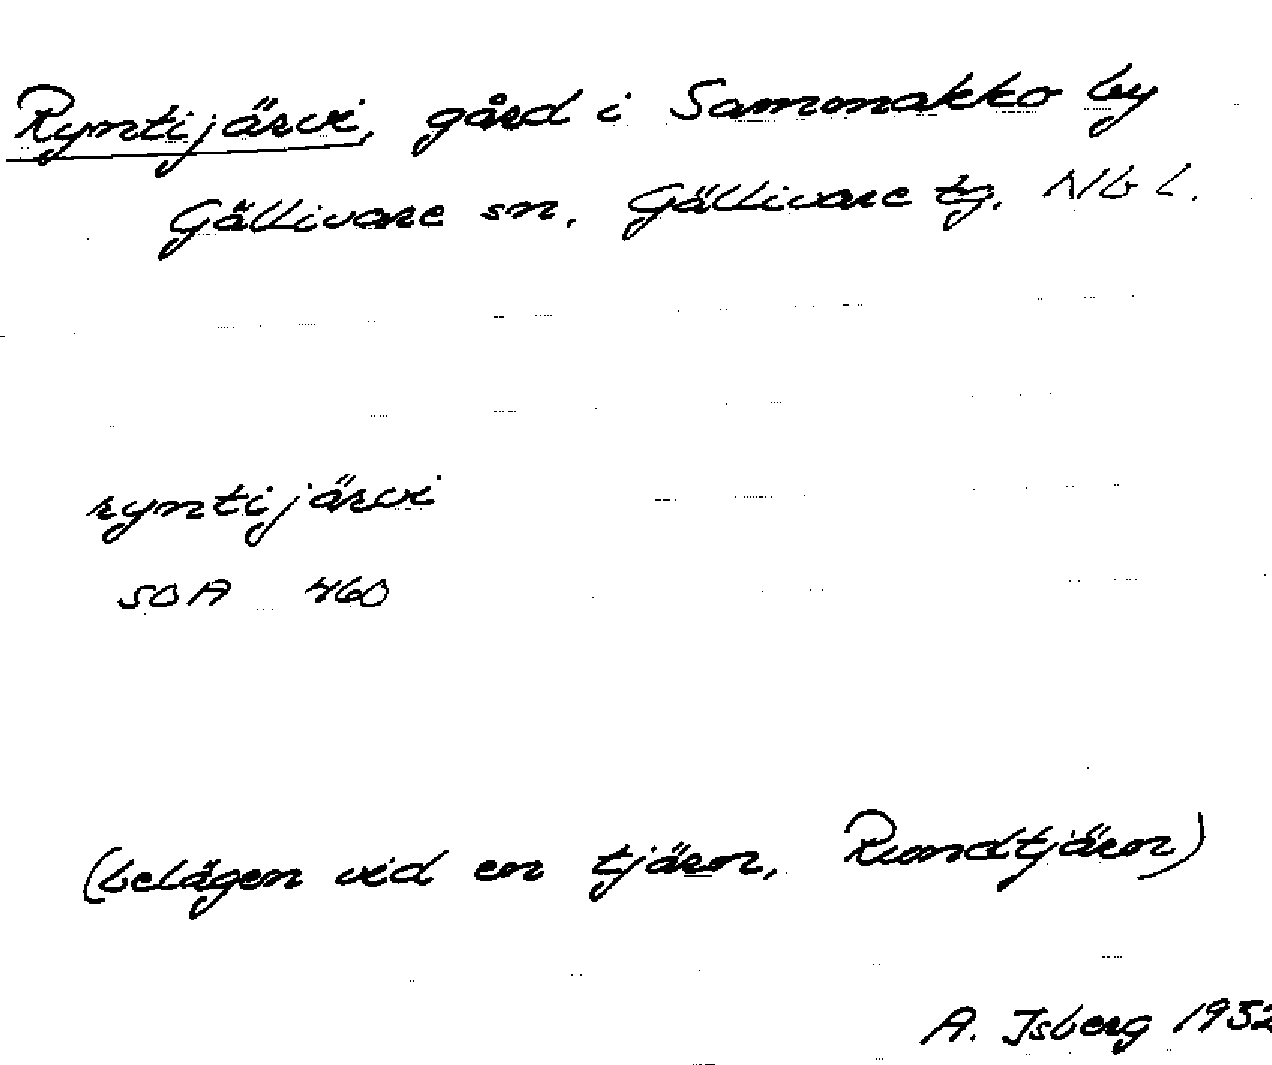 Ryntijärvi, gård i Sammakko by
Gällivare sn. Gällivare tg. Nb l.
ryntijärvi
SOA 460
(belägen vid en tjärn, Rundtjärn)
A. Isberg 1932